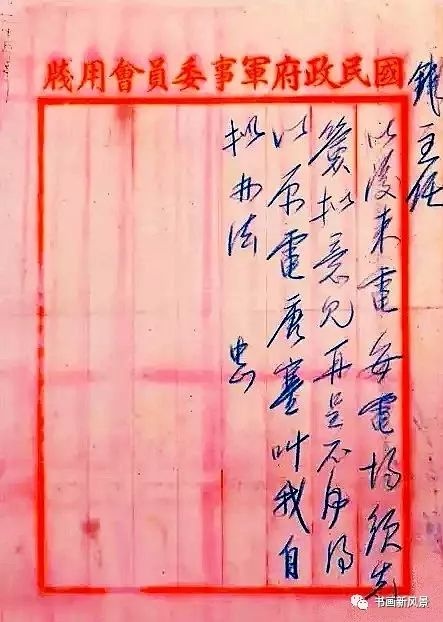 國民政府軍事委員會用牋
錢主任
以後来電每電均須先
簽拟意见再呈不得
以原電唐塞叫我自
拟办法
书画新风景